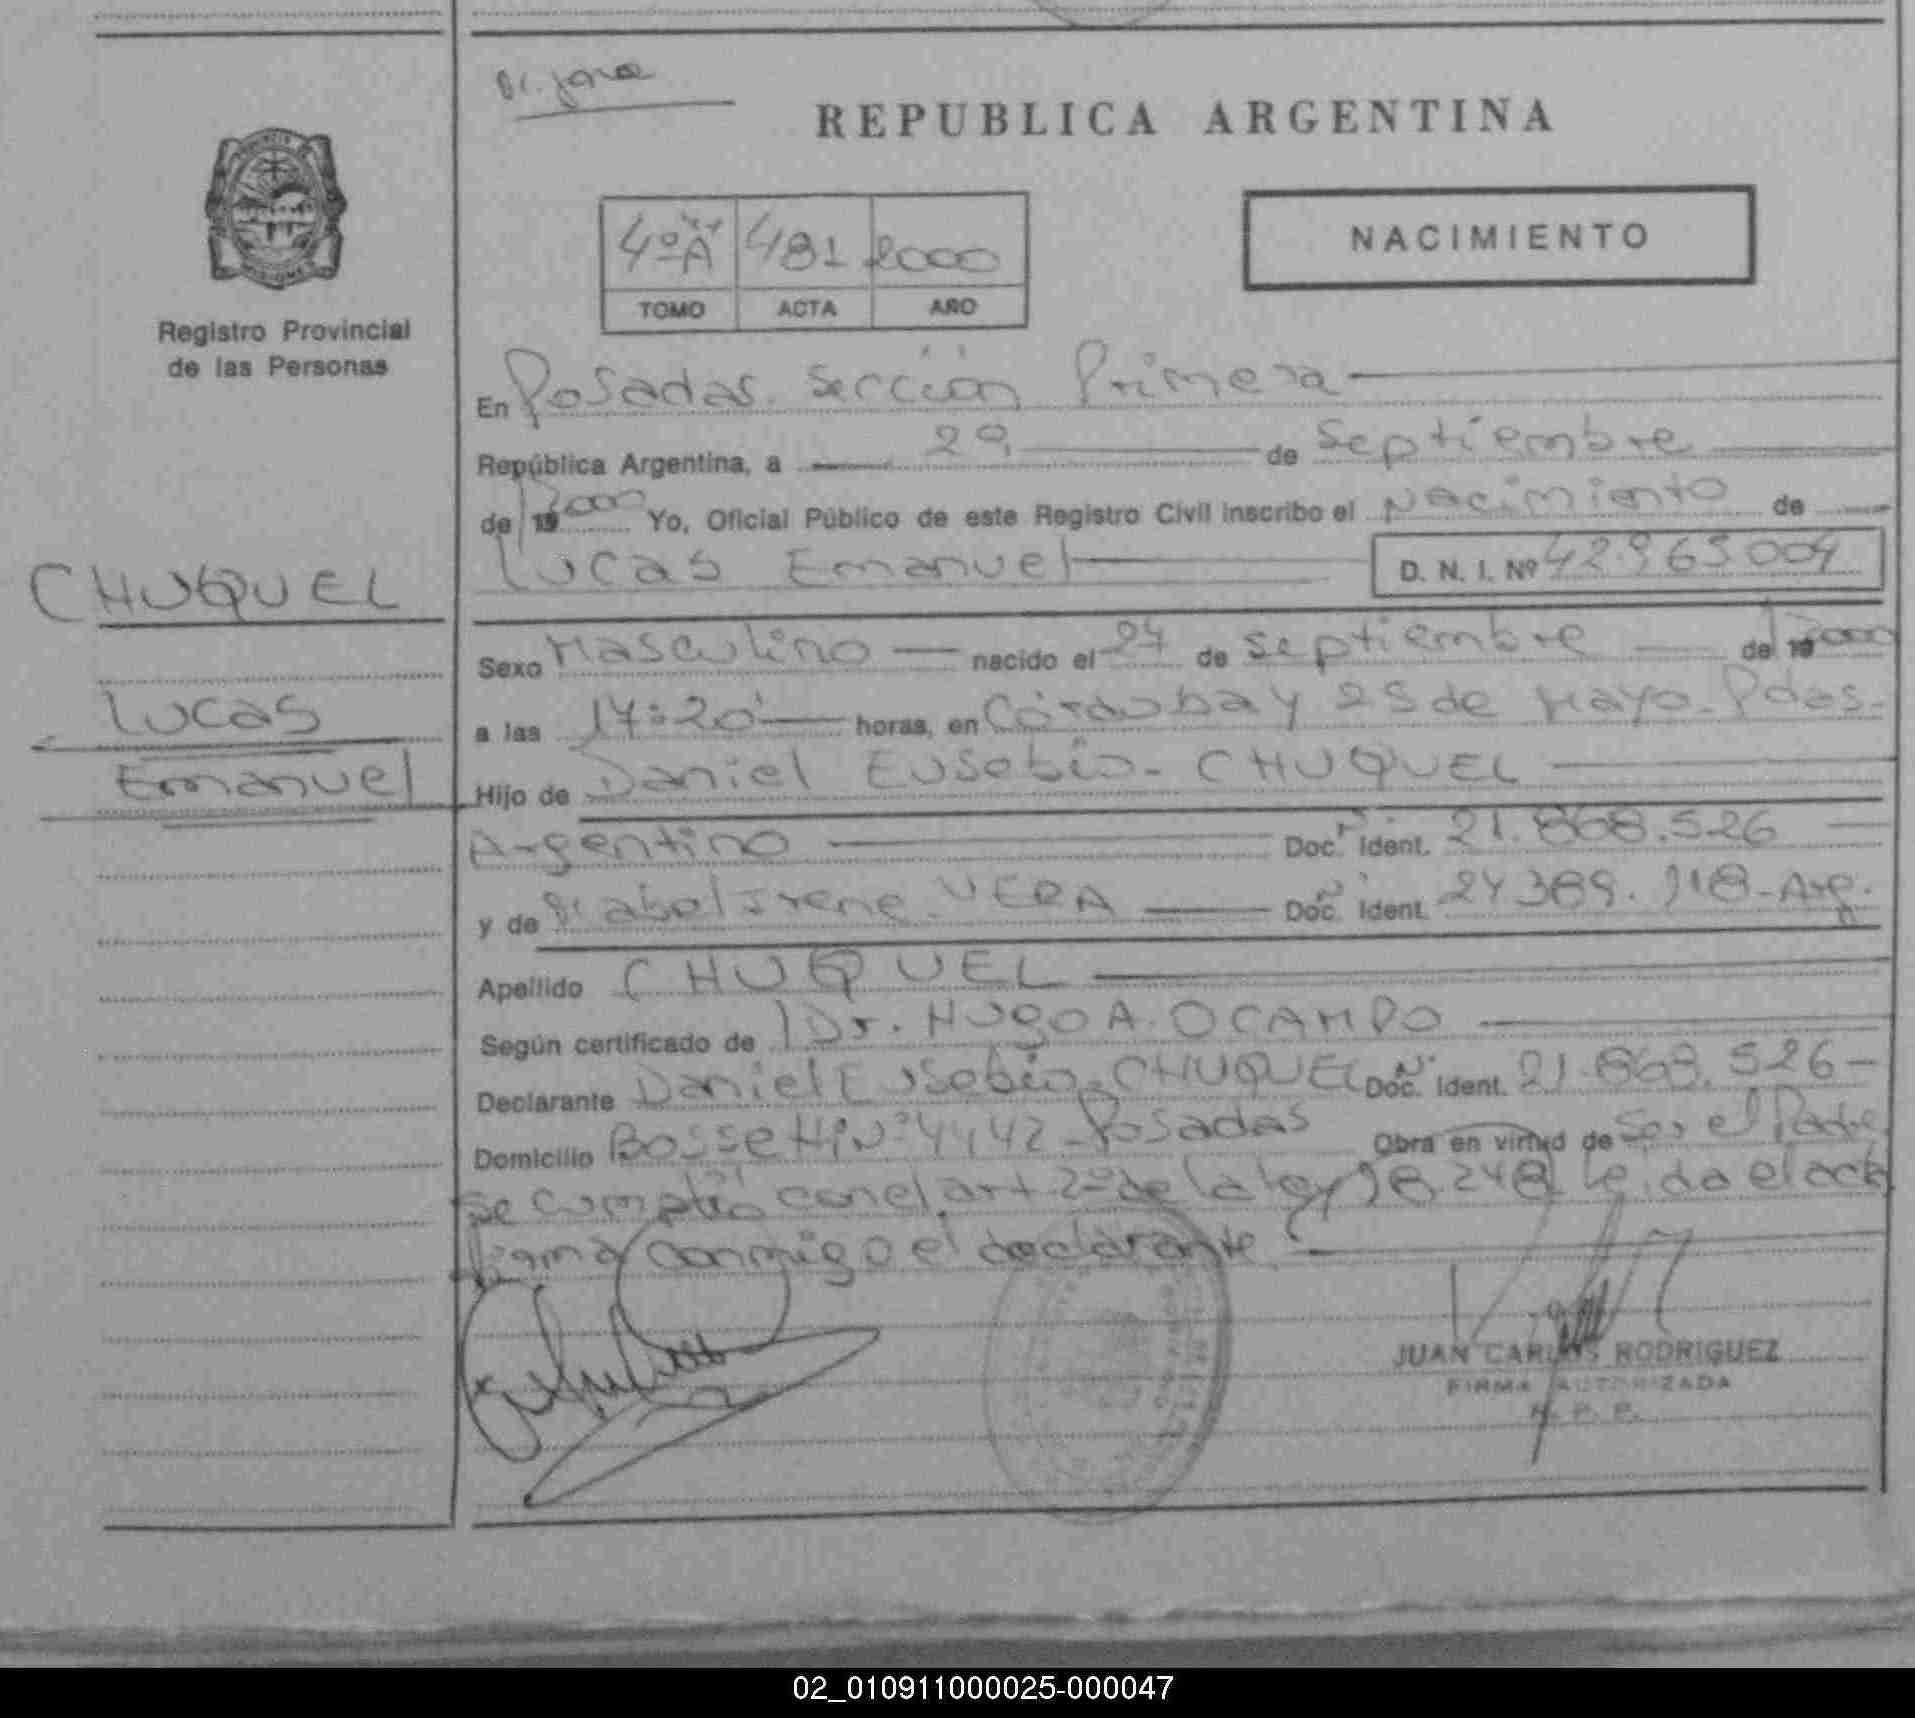 REPUBLICA ARGENTINA
4ºA 481 2000
TOMO ACTA AÑO
NACIMIENTO
Registro Provincial
de las Personas
En Posadas. Sección Primera
República Argentina, a 29 de Septiembre
de 2000 Yo, Oficial Público de este Registro Civil inscribo el Nacimiento de
Lucas Emanuel D. N. I. Nº 42.963.004
CHUQUEL
Lucas
Emanuel
Sexo Masculino nacido el 24 de Septiembre de 2000
a las 17:20 horas, en Córdoba y 25 de Mayo. Pdas.
Hijo de Daniel Eusebio - CHUQUEL
Argentino Doc. Ident. 21.868.526
y de Mabel Irene VERA Doc. Ident. 24.389.918 - Arg.
Apellido CHUQUEL
Según certificado de Dr. HUGO A. OCAMPO
Declarante Daniel Eusebio - CHUQUEL Doc. Ident. 21.868.526 -
Domicilio Bossetti Nº 4442 - Posadas Obra en virtud de Ser el Padre
Se cumplió con el art 2º de la ley 18.248 Leída el acta
firma conmigo el declarante.
JUAN CARLOS RODRIGUEZ
FIRMA AUTORIZADA
R. P. P.
02_010911000025-000047